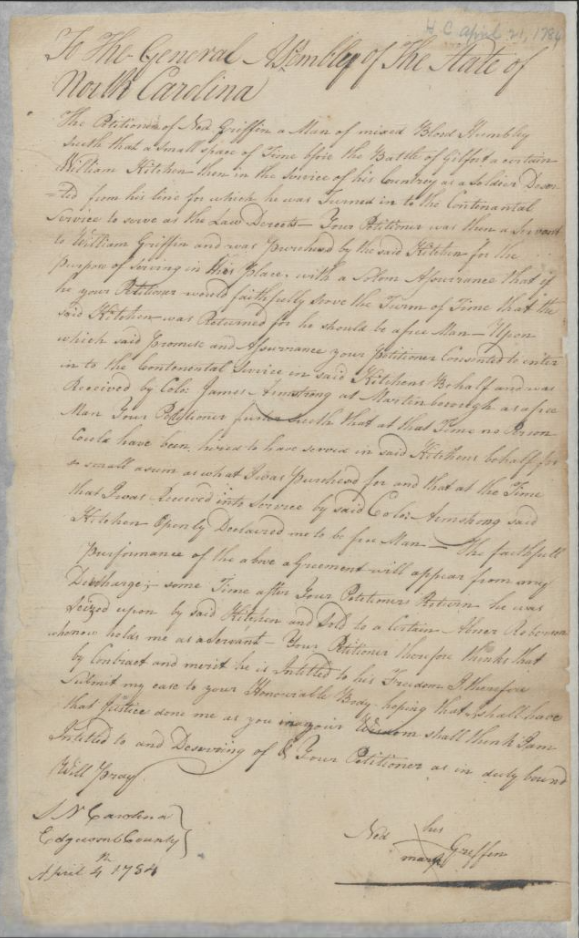 H. C. april 21, 1784
To The General Assembley of The State of
North Carolina
The Petition of Ned Griffin a Man of mixed Blood Humbley
Saeth that a Small space of Time before the Battle of Gilford a certain
William Kitchen then in the Service of his Countrey as a Soldier Deser-
-ted from his line for which he was Turned in to the Continental
Service to serve as the Law Directs – Your Petitioner was then a Servant
to William Griffin and was Purchesed by the said Kitchen for the
purpose of Serving in His place, with a Solom Assurance that if
he your Petitioner would faithfully serve the Term of Time that the
said Kitchen was Returned for he should be a free Man – Upon
which said Promise and Assurance your Petitioner Consented to enter
in to the Continental Service in said Kitchens Behalf and was
Received by Colo: James Armstrong at Martinborough as a free
Man Your Petitioner further saeth that at that Time no Person
Could have been hired to have served in said Kitchens behalf for
so small a sum as what I was Purchesed for and that at the Time
that I was Received into Service by said Colo: Armstrong said
Kitchen Openly Declaired me to be free Man – The faithfull
performance of the above agreement will appear from my
Discharge; – some Time after Your Petitioners Return he was
Seized upon by said Kitchen and Sold to a Certain Abner Roberson
who now holds me as a Servant – Your Petitioner therefore thinks that
by Contract and merit he is Intitled to his Freedom I therefore
submit my case to your Honourable Body hoping that I shall have
that Justice done me as you in your Wisdom shall think I am
Intitled to and Deserving of & Your Petitioner as in duty bound
Will Pray
S N Carolina
Edgecomb County
April 4th 1784
Ned his Griffin
mark